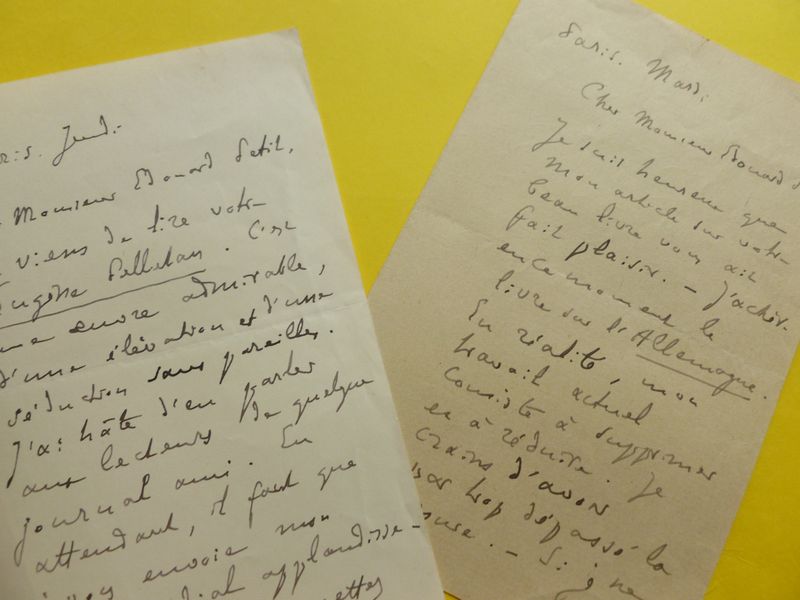 Jeudi
Monsieur Edouard Petit,
viens de lire votre
Eugène Pelletan. C'est
une œuvre admirable,
d'une élévation et d'une
séduction sans pareilles.
J'ai hâte d'en parler
aux lecteurs de quelque
journal ami. En
attendant, il faut que
envoie mon
applaudisse-
Paris. Mardi
Cher Monsieur Edouard
Je suis heureux que
mon article sur votre
beau livre vous ait
fait plaisir. – J'achève
en ce moment le
livre sur l'Allemagne.
En réalité, mon
travail actuel
consiste à supprimer
et à réduire. Je
crains d'avoir
par trop dépassé la
– Si